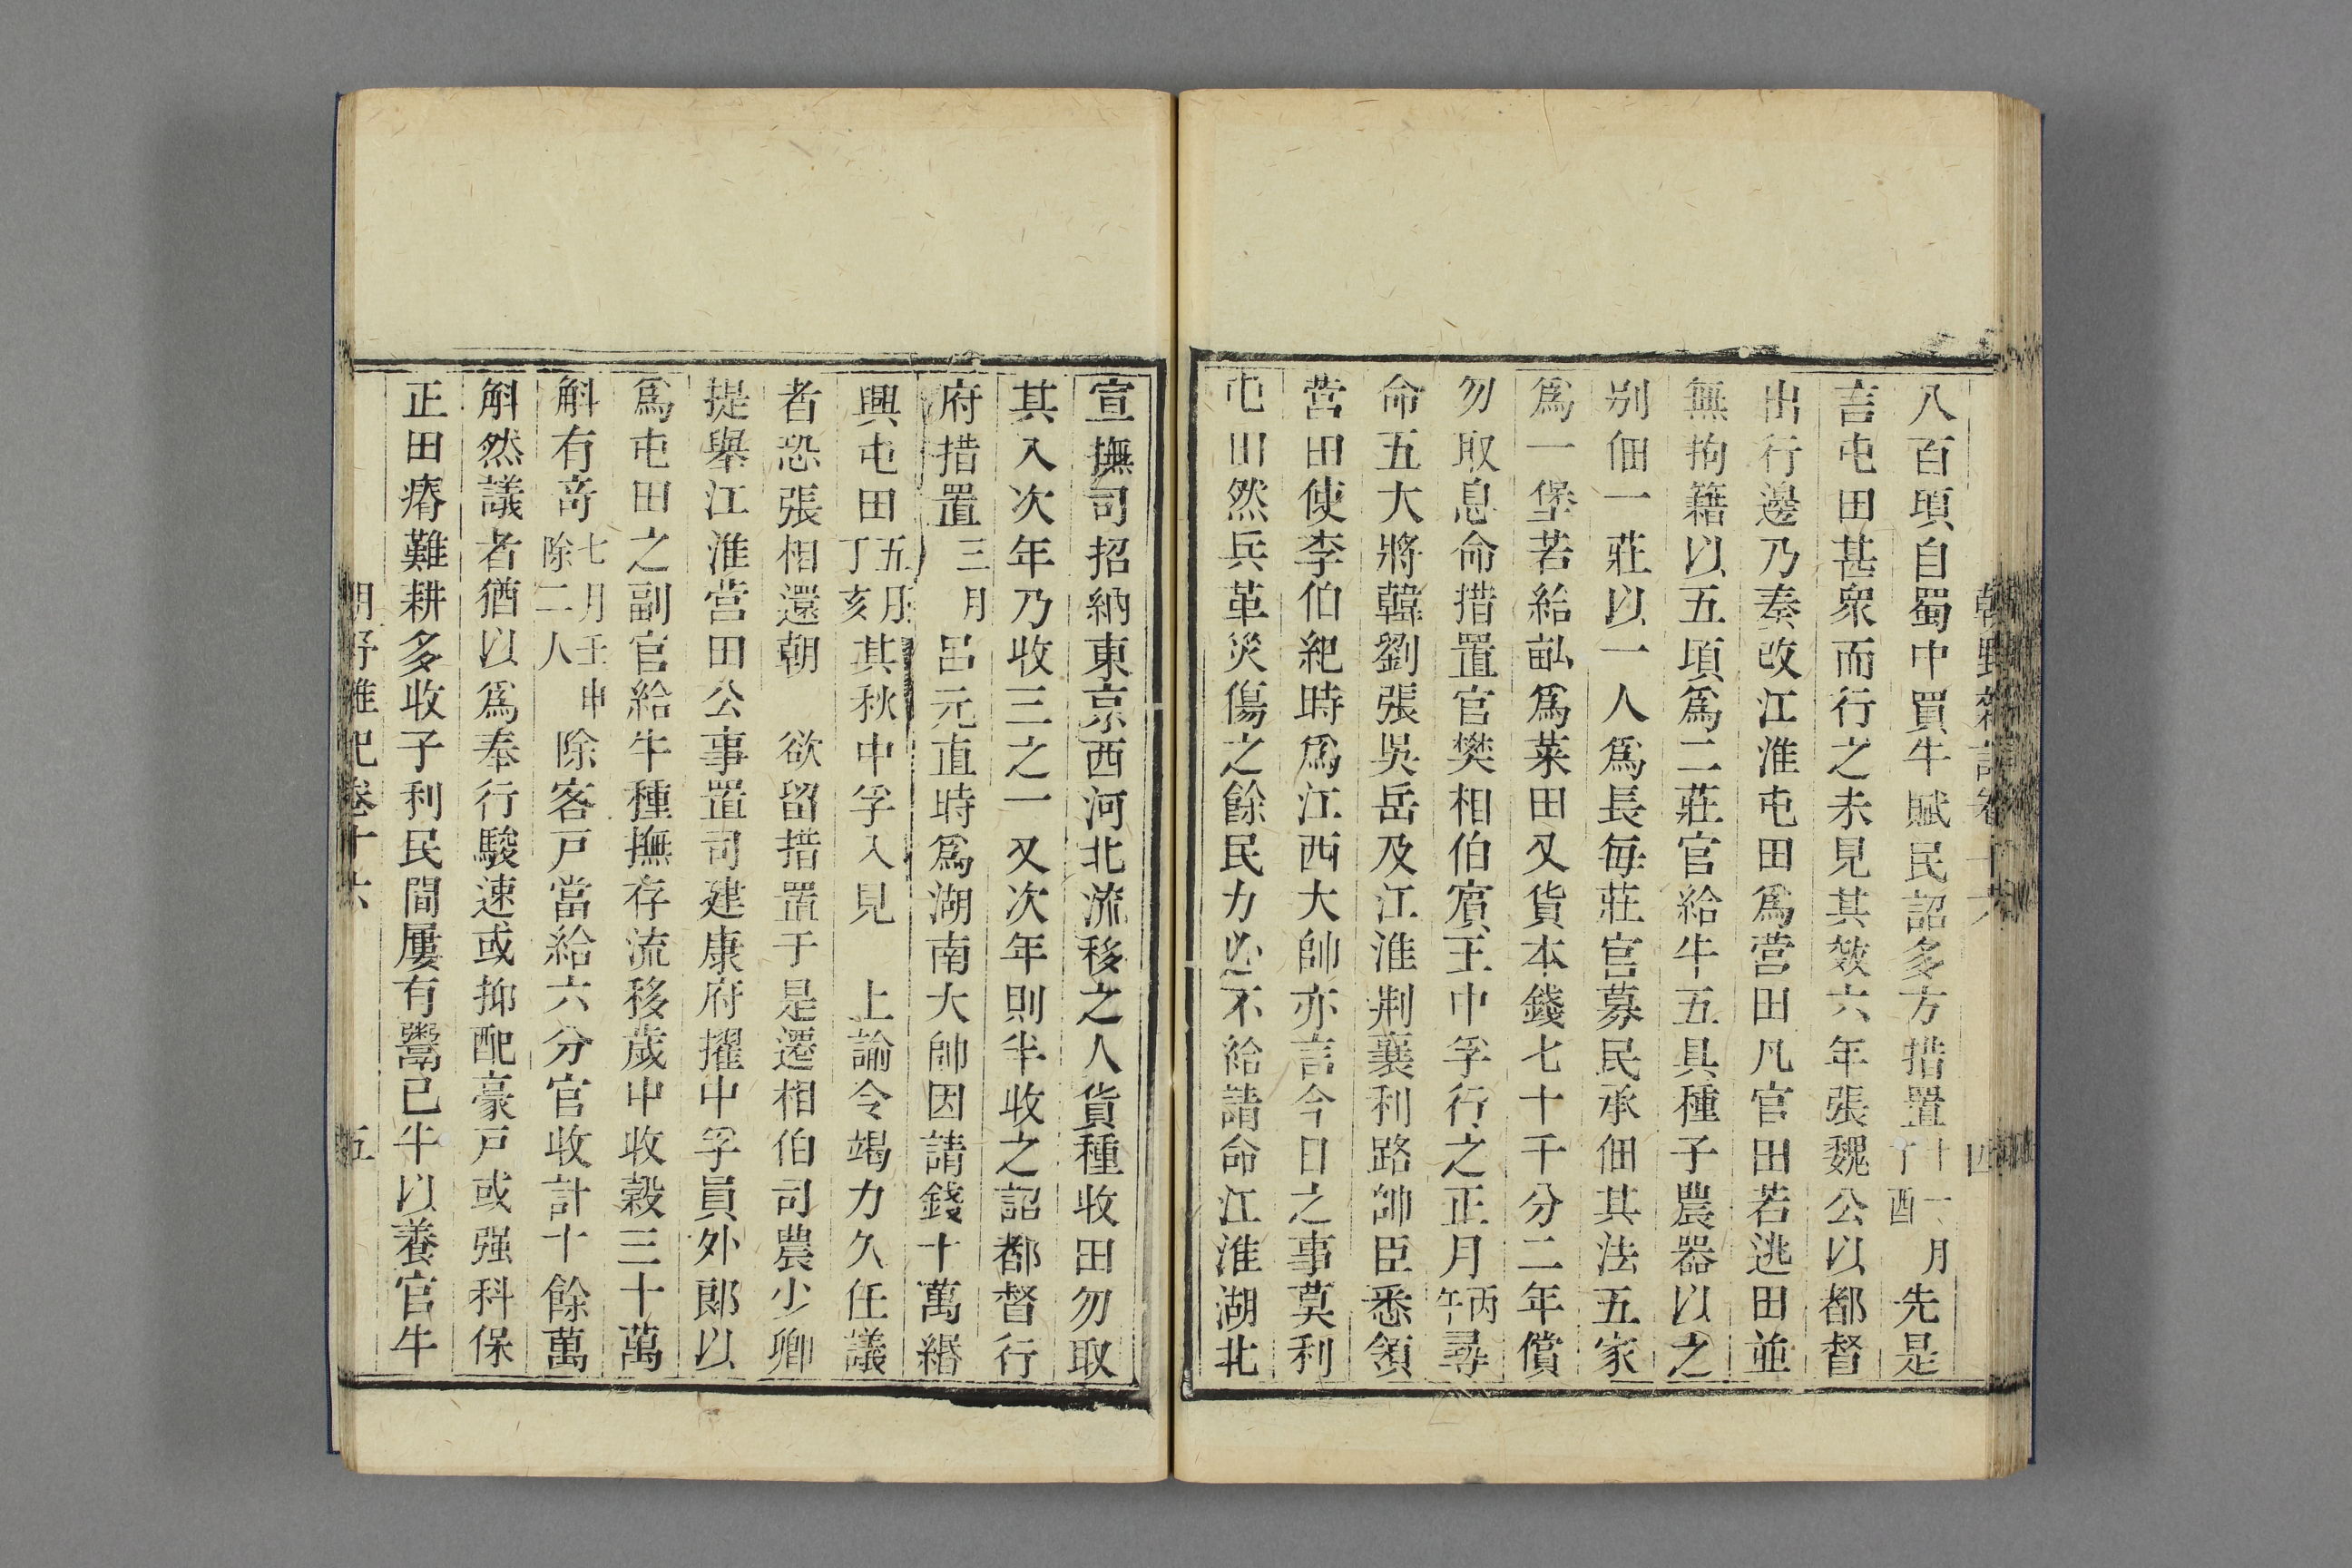 八百頃自蜀中買牛賦民詔多方措置十一月丁酉先是
言屯田甚衆而行之未見其效六年張魏公以都督
出行邊乃奏改江淮屯田爲營田凡官田若逃田並
無拘籍以五頃爲二莊官給牛五具種子農器以之
别佃一莊以一人爲長每莊官募民承佃其法五家
爲一堡若給畆爲菜田又貨本錢七十千分二年償
勿取息命措置官樊相伯賓王中孚行之正月丙午尋
命五大將韓劉張吳岳及江淮荆襄利路帥臣悉領
营田使李伯紀時爲江西大帥亦言今日之事莫利
屯田然兵革災傷之餘民力必不給請命江淮湖北
宣撫司招納東京西河北流移之人貨種收田勿取
其入次年乃收三之一又次年則半收之詔都督行
府措置三月呂元直時爲湖南大帥因請錢十萬緡
興屯田五月丁亥其秋中孚入見 上諭令竭力久任議
者恐張相還朝 欲留措置于是遷相伯司農少卿
提舉江淮营田公事置司建康府擢中孚員外郎以
爲屯田之副官給牛種撫存流移歲中收穀三十萬
斛有奇七月壬申除二人除客戸當給六分官收計十餘萬
斛然議者猶以爲奉行駿速或抑配豪戸或强科保
正田瘠難耕多收子利民間屢有鬻己牛以養官牛
朝野雜記卷十六 四
朝野雜記卷十六 五